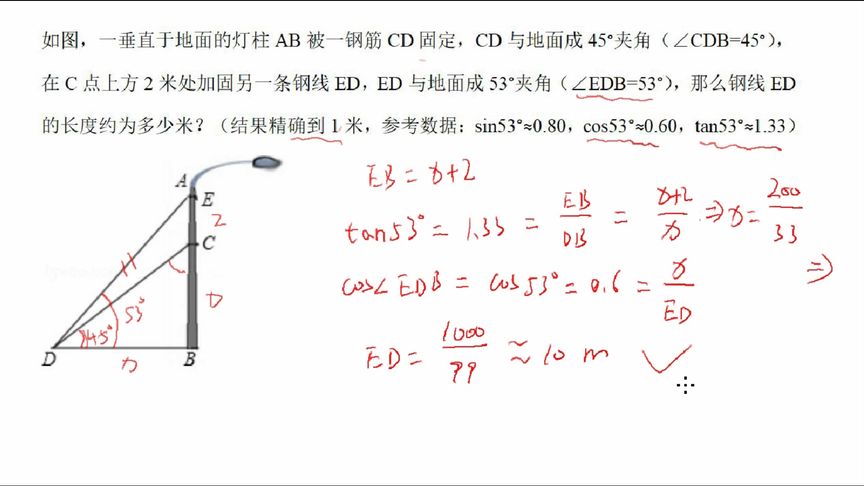 如图，一垂直于地面的灯柱 AB 被一钢筋 CD 固定，CD 与地面成 45°夹角（∠CDB=45°），
在 C 点上方 2 米处加固另一条钢线 ED，ED 与地面成 53°夹角（∠EDB=53°），那么钢线 ED
的长度约为多少米？（结果精确到 1 米，参考数据：sin53°≈0.80，cos53°≈0.60，tan53°≈1.33）
A
E
2
C
x
53°
45°
D
x
B
EB = x+2
tan53° = 1.33 = EB/DB = x+2/x ⇒ x = 200/33
⇒
cos∠EDB = cos53° = 0.6 = x/ED
ED = 1000/99 ≈ 10 m ✓